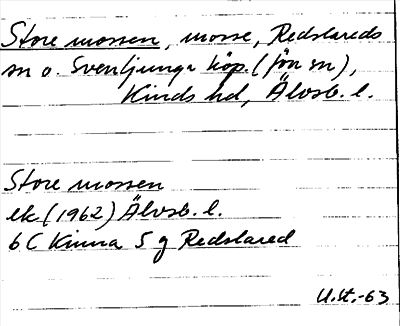 Store mossen, mosse, Redslareds
sn o. Svenljunga köp. (förs. sn),
Kinds hd, Älvsb. l.
Store mossen
ek (1962) Älvsb. l.
6 C Kinna 5 g Redslared
U.st.-63